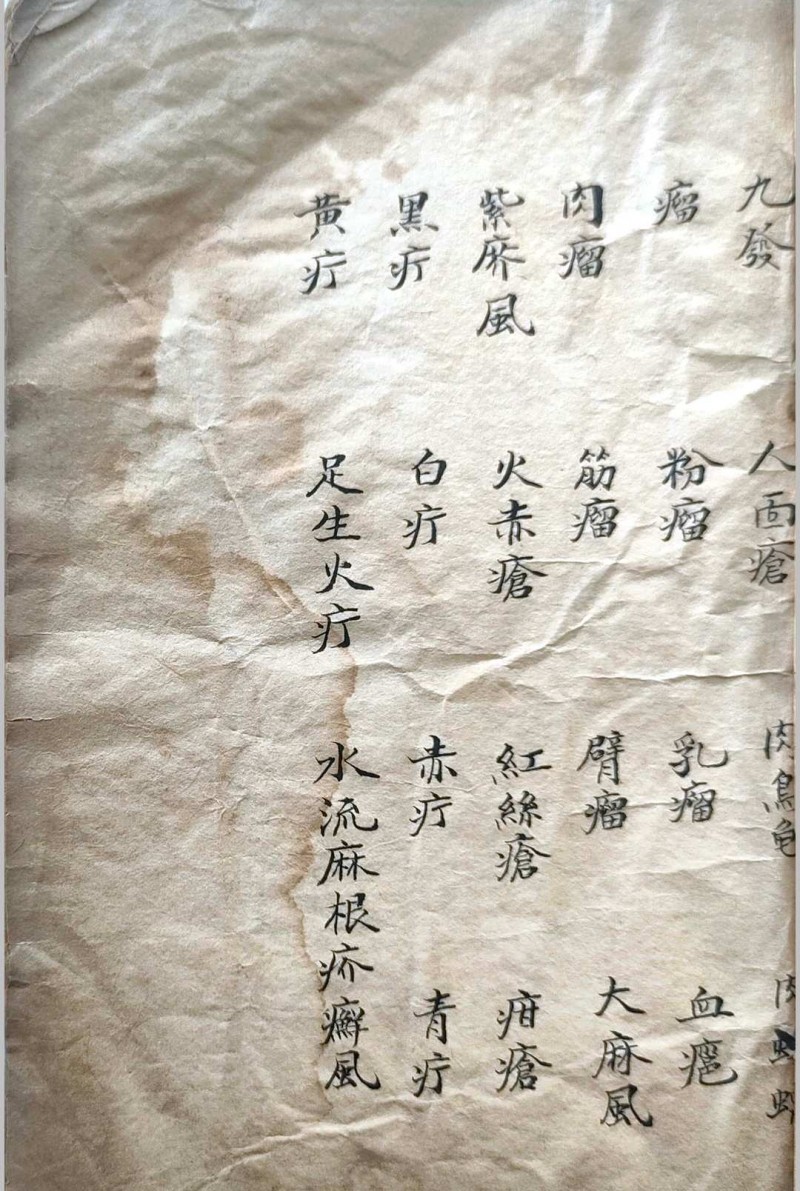 九發 人面瘡 肉烏龟 肉
瘤 粉瘤 乳瘤 血瘤
肉瘤 筋瘤 臂瘤 大麻風
紫麻風 火赤瘡 紅絲瘡 疳瘡
黑疔 白疔 赤疔 青疔
黃疔 足生火疔 水流麻根疥癬風